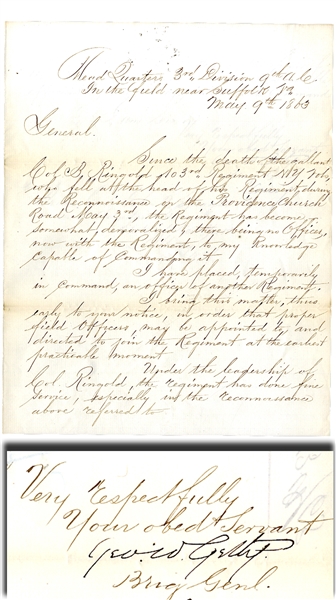 Head Quarters 3rd Division 9th A.C.
In the field near Suffolk Va
May 9th 1863
General.
Since the death of the gallant
Col B. Ringold 103rd Regiment NY Vols,
who fell at the head of his Regiment, during
the Reconnoisance on the Providence Church
Road May 3rd, the Regiment has become
somewhat demoralized, there being no Officer,
now with the Regiment, to my Knowledge
capable of Commanding it.
I have placed, temporarily
in command, an officer of another Regiment.
I bring this matter, thus
early to your notice, in order that proper
field Officers, may be appointed to, and
directed to join the Regiment at the earliest
practicable moment
Under the leadership of
Col Ringold, the regiment has done fine
service, especially in the reconnoissance
above referred to
Very respectfully
Your obedt Servant
Geo. W. Getty.
Brig Genl.